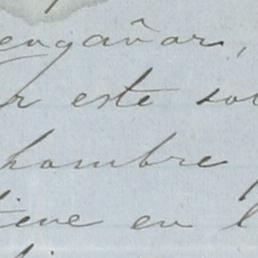 engañar,
este
hombre
tiene en